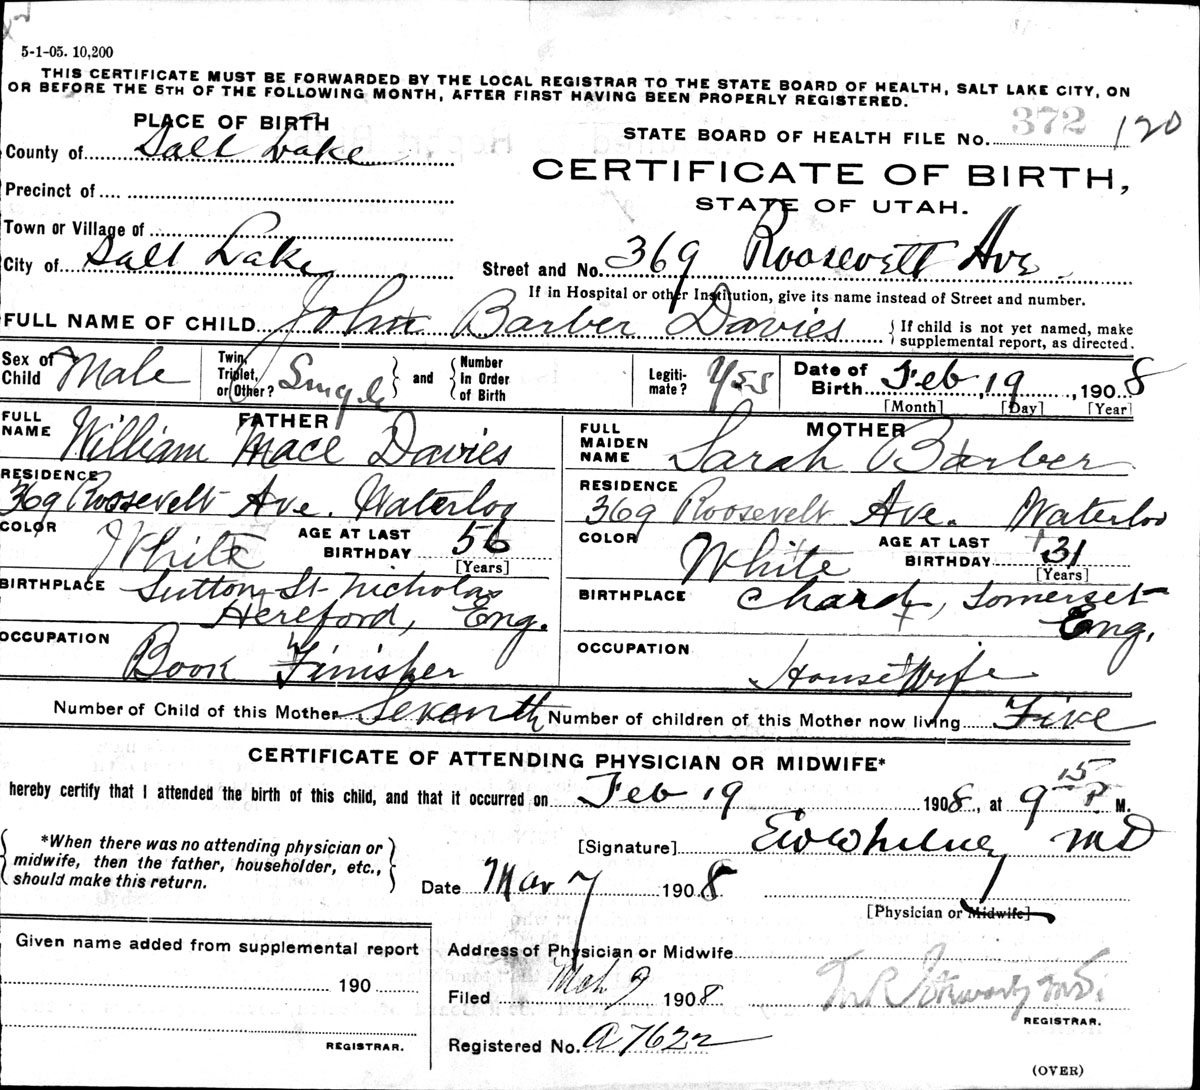 5-1-05. 10,200
THIS CERTIFICATE MUST BE FORWARDED BY THE LOCAL REGISTRAR TO THE STATE BOARD OF HEALTH, SALT LAKE CITY, ON
OR BEFORE THE 5TH OF THE FOLLOWING MONTH, AFTER FIRST HAVING BEEN PROPERLY REGISTERED.
PLACE OF BIRTH
County of Salt Lake
Precinct of
Town or Village of
City of Salt Lake
STATE BOARD OF HEALTH FILE No. 372 120
CERTIFICATE OF BIRTH,
STATE OF UTAH.
Street and No. 369 Roosevelt Ave.
If in Hospital or other Institution, give its name instead of Street and number.
FULL NAME OF CHILD John Barber Davies { If child is not yet named, make supplemental report, as directed.
Sex of Child Male
Twin, Triplet, or Other? Single } and { Number in Order of Birth
Legiti-mate? Yes
Date of Birth Feb, 19, 1908
[Month] [Day] [Year]
FATHER
FULL NAME William Mace Davies
RESIDENCE
369 Roosevelt Ave. Waterloo
COLOR White
AGE AT LAST BIRTHDAY 56
[Years]
BIRTHPLACE Sutton St. Nicholas
Hereford, Eng.
OCCUPATION
Book Finisher
MOTHER
FULL MAIDEN NAME Sarah Barber
RESIDENCE
369 Roosevelt Ave. Waterloo
COLOR White
AGE AT LAST BIRTHDAY 31
[Years]
BIRTHPLACE Chard, Somerset
Eng.
OCCUPATION
Housewife
Number of Child of this Mother Seventh Number of children of this Mother now living Five
CERTIFICATE OF ATTENDING PHYSICIAN OR MIDWIFE*
hereby certify that I attended the birth of this child, and that it occurred on Feb 19 1908, at 9 15 P. M.
{ *When there was no attending physician or
midwife, then the father, householder, etc.,
should make this return. }
[Signature] MD
Date Mar 7 1908
[Physician or Midwife]
Given name added from supplemental report
190
REGISTRAR.
Address of Physician or Midwife
Filed Mch 9 1908
M.D.
REGISTRAR.
Registered No. A7622
(OVER)